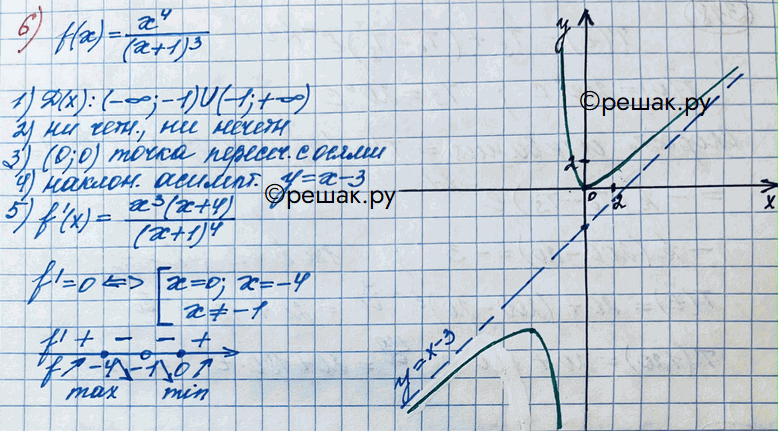 6) f(x) = x⁴/(x+1)³
1) D(x): (-∞; -1) ∪ (-1; +∞)
2) ни четн., ни нечетн
3) (0; 0) точка пересеч. с осями
4) наклон. асимпт. y = x-3
5) f'(x) = x³(x+4)/(x+1)⁴
f' = 0 <=> [x=0; x=-4
x ≠ -1
f' + - - +
f ↗ -4 ↘ -1 ↘ 0 ↗
max min
©решак.ру
y
©решак.ру
2
0 2 x
y = x-3